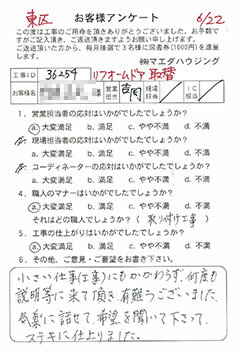 東区
お客様アンケート
6/22
この度は工事のご用命を頂きありがとうございました。お手数で
すがご記入頂き、ご返送頂きますようお願い申し上げます。
ご返送頂いた方から、毎月抽選で3名様に図書券(1000円)を進呈
します。
㈱マエダハウジング
工事ID 36254 リフォームドア取替
お客様名 様 営業担当 現場担当 IC担当
1. 営業担当者の応対はいかがでしたでしょうか?
a. 大変満足 b. 満足 c. やや不満 d. 不満
2. 現場担当者の応対はいかがでしたでしょうか?
a. 大変満足 b. 満足 c. やや不満 d. 不満
3. コーディネーターの応対はいかがでしたでしょうか?
a. 大変満足 b. 満足 c. やや不満 d. 不満
4. 職人のマナーはいかがでしたでしょうか?
a. 大変満足 b. 満足 c. やや不満 d. 不満
それはどの職人でしょうか?( 取り付け工事 )
5. 工事の仕上がりはいかがでしたでしょうか?
a. 大変満足 b. 満足 c. やや不満 d. 不満
6. その他、ご意見・ご要望をお書き下さい。
小さい仕事(工事)にもかかわらず、何度も
説明等に来て頂き有難うございました。
気楽に話せて、希望を聞いて下さって、
ステキに仕上りました。